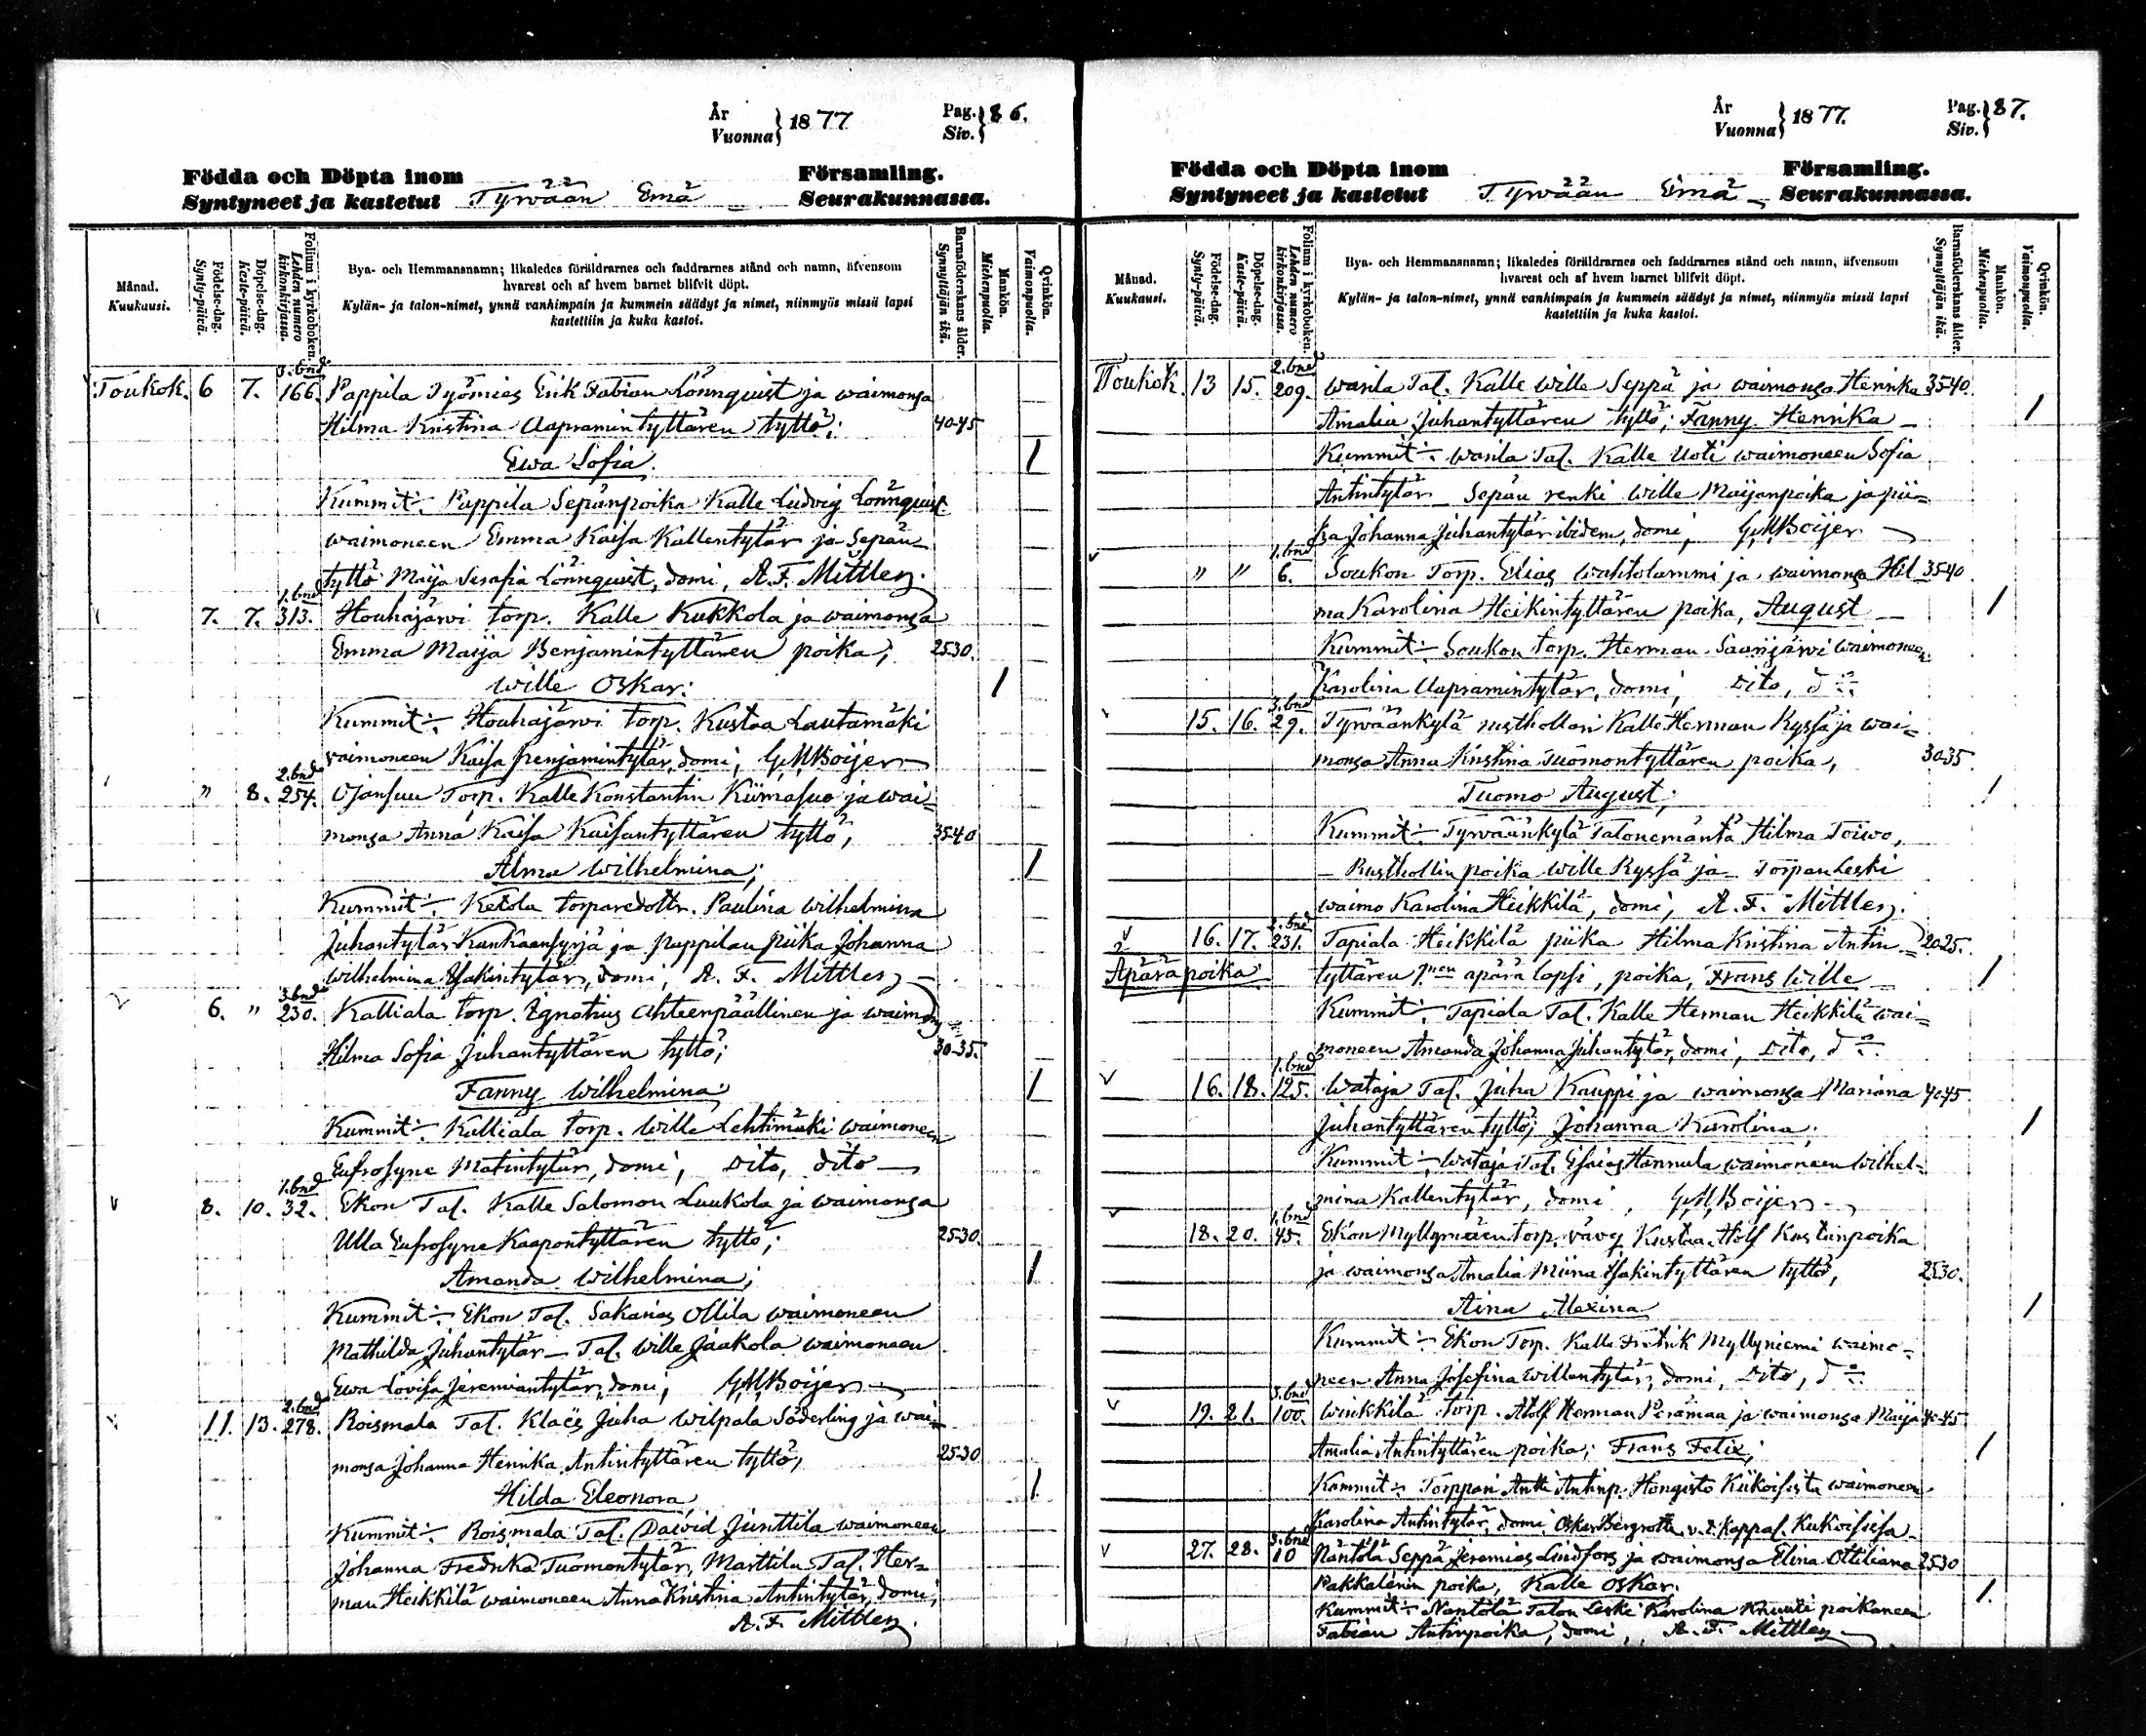 År
Vuonna } 1877
Pag.
Siv. } 86.
Födda och Döpta inom Församling.
Syntyneet ja kastetut Tyrvään Emä Seurakunnassa.
Månad.
Kuukausi.
Födelse-dag.
Synty-päivä.
Döpelse-dag.
Kaste-päivä.
Folium i kyrkoboken.
Lehden numero
kirkonkirjassa.
Bya- och Hemmansnamn; likaledes föräldrarnes och faddrarnes stånd och namn, äfvensom
hvarest och af hvem barnet blifvit döpt.
Kylän- ja talon-nimet, ynnä vanhimpain ja kummein säädyt ja nimet, niinmyös missä lapsi
kastettiin ja kuka kastoi.
Barnaföderskans ålder.
Synnyttäjän ikä.
Mankön.
Miehenpuolia.
Qvinkön.
Vaimonpuolia.
3. bnd
Toukok. 6 7. 166. Pappila Työmies Erik Fabian Lönnquist ja waimonsa
Hilma Kristina Aapramintyttären tyttö; 40-45
Ewa Sofia. 1
Kummit:- Pappila Sepänpoika Kalle Ludvig Lönnquist
waimoneen Emma Kaisa Kallentytär ja Sepän
tyttö Maija Serafia Lönnquist, domi, A. F. Mittler.
1. bnd
7. 7. 313. Houhajärvi torp. Kalle Kukkola ja waimonsa
Emma Maija Benjamintyttären poika; 25-30.
Wille Oskar: 1
Kummit:- Houhajärvi torp. Kustaa Lautamäki
vaimoneen Kaisa Penjamintytär, domi; G M Boijer
2. bnd
" 8. 254. Ojansuu Torp. Kalle Konstantin Kiimasuo ja wai=
monsa Anna Kaisa Kaisantyttären tyttö; 35-40
Alma Wilhelmina; 1
Kummit:- Ketola torparedottr. Paulina Wilhelmina
Juhantytär Kankaansyrjä ja pappilan piika Johanna
Wilhelmina Isakintytär, domi, A. F. Mittler
3. bnd
6. " 230. Kalliala torp. Ignatius Ahteenpäällinen ja waimonsa
Hilma Sofia Juhantyttären tyttö; 30-35.
Fanny Wilhelmina: 1
Kummit:- Kalliala torp. Wille Lehtimäki waimoneen
Eufrosyne Matintytär, domi, Dito, dito
1. bnd
8. 10. 32. Ekon Tal. Kalle Salomon Luukola ja waimonsa
Ulla Eufrosyne Kaapontyttären tyttö; 25-30.
Amanda Wilhelmina; 1
Kummit:- Ekon Tal. Sakarias Ollila waimoneen
Mathilda Juhantytär - Tal. Wille Jaakola waimoneen
Ewa Lovisa Jeremiantytär, domi, G M Boijer
2. bnd
11. 13. 278. Roismala Tal. Klaës Juha Wilpala Söderling ja wai=
monsa Johanna Henrika Antintyttären tyttö; 25-30
Hilda Eleonora 1
Kummit:- Roismala Tal. Dawid Junttila waimoneen
Johanna Fredrika Tuomontytär, Marttila Tal. Her=
man Heikkilä waimoneen Anna Kristina Antintytär, domi,
A. F. Mittler.
År
Vuonna } 1877.
Pag.
Siv. } 87.
Födda och Döpta inom Församling.
Syntyneet ja kastetut Tyrvään Emä Seurakunnassa.
Månad.
Kuukausi.
Födelse-dag.
Synty-päivä.
Döpelse-dag.
Kaste-päivä.
Folium i kyrkoboken.
Lehden numero
kirkonkirjassa.
Bya- och Hemmansnamn; likaledes föräldrarnes och faddrarnes stånd och namn, äfvensom
hvarest och af hvem barnet blifvit döpt.
Kylän- ja talon-nimet, ynnä vanhimpain ja kummein säädyt ja nimet, niinmyös missä lapsi
kastettiin ja kuka kastoi.
Barnaföderskans ålder.
Synnyttäjän ikä.
Mankön.
Miehenpuolia.
Qvinkön.
Vaimonpuolia.
2. bnd
Toukok. 13 15. 209. Warila Tal. Kalle Wille Seppä ja waimonsa Henrika 35-40.
Amalia Juhantyttären tyttö; Fanny Henrika 1
Kummit:- Warila Tal. Kalle Uoti waimoneen Sofia
Antintytär Sepän renki Wille Maijanpoika ja pii=
ka Johanna Juhantytär ibidem, domi, G M Boijer
1. bnd
" " 6. Soukon Torp. Elias Wahtolammi ja waimonsa Hil 35-40
ma Karolina Heikintyttären poika, August 1
Kummit:- Soukon torp. Herman Saarijärvi waimoneen
Karolina Aapramintytär, domi, Dito, do
3. bnd
15. 16. 29. Tyrväänkylä rusthollari Kalle Herman Ryssä ja wai=
monsa Anna Kristina Tuomontyttären poika, 30-35.
Tuomo August; 1
Kummit:- Tyrväänkylä Talonemäntä Hilma Toiwo,
- Rusthollin poika Wille Ryssä ja Torpan Leski
waimo Karolina Heikkilä, domi, A. F. Mittler.
2. bnd
16. 17. 231. Tapiala Heikkilä piika Hilma Kristina Antin= 20-25.
Äpärä poika tyttären 1nen äpärä lapsi, poika, Frans Wille 1
Kummit:- Tapiala Tal. Kalle Herman Heikkilä wai=
moneen Amanda Johanna Juhantytär, domi, Dito, do
1. bnd
16. 18. 125. Wataja Tal. Juha Kauppi ja waimonsa Mariana 40-45
Juhantyttären tyttö; Johanna Karolina. 1
Kummit:- Wataja Tal. Esaias Hannula waimoneen Wilhel=
mina Kallentytär, domi, G M Boijer
1. bnd
18. 20. 45. Ekon Myllyniemen torp. vävy Kustaa Adolf Kustaanpoika
ja waimonsa Amalia Miina Isakintyttären tyttö, 25-30.
Aina Alexina 1
Kummit:- Ekon Torp. Kalle Fredrik Myllyniemi waimo=
neen Anna Josefina Willentytär, domi, Dito, do
3. bnd
19. 21. 100. Winkkilä Torp. Adolf Herman Perämaa ja waimonsa Maija 40-45
Amalia Antintyttären poika; Frans Felix; 1
Kummit:- Torppari Antti Antinp. Hongisto Kiikoisista waimoneen
Karolina Antintytär, domi, Oskar Bergroth, v. t. Kappal. Kiikoisissa
3. bnd
27. 28. 10 Näntölä Seppä Jeremias Lindfors ja waimonsa Elina Ottiliana 25-30
Pakkalénin poika, Kalle Oskar. 1.
Kummit:- Näntölä Talon Leski Karolina Knuuti poikaneen
Fabian Antinpoika, domi, A. F. Mittler